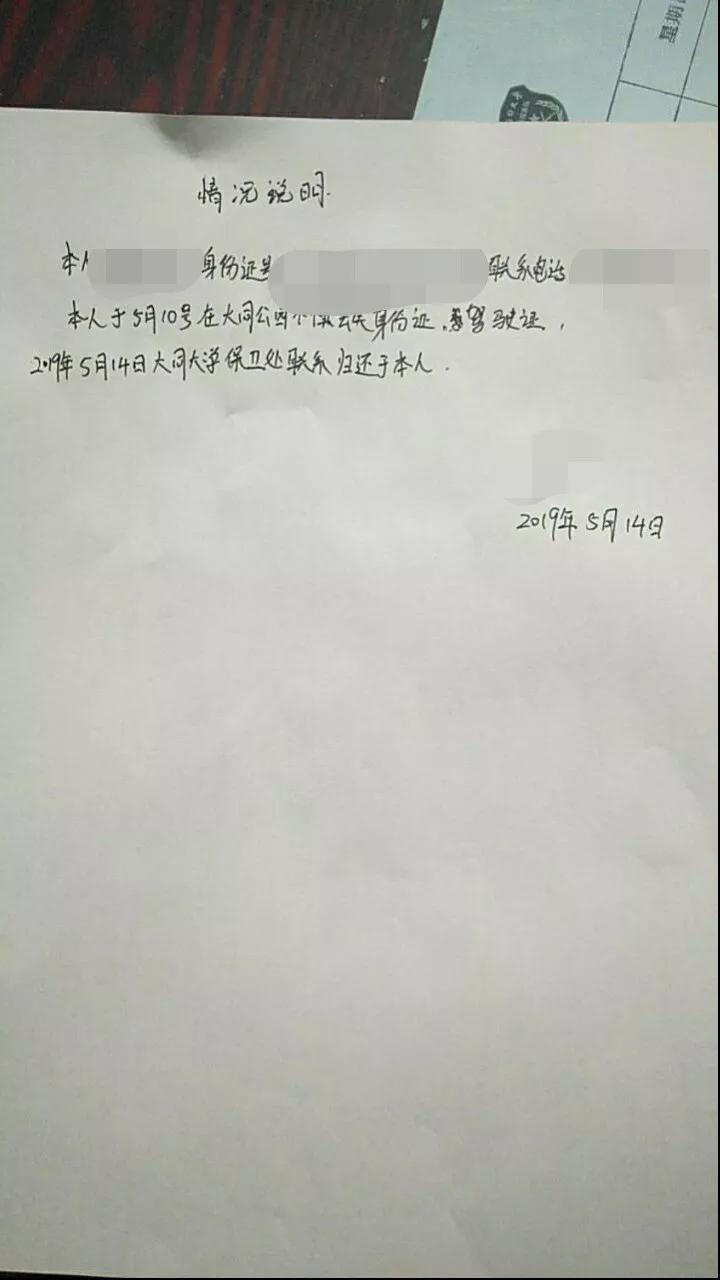 星期
情况说明.
本人 身份证号 联系电话
本人于5月10号在大同公园不慎丢失身份证、驾驶证,
2019年5月14日大同大学保卫处联系归还于本人.
2019年5月14日